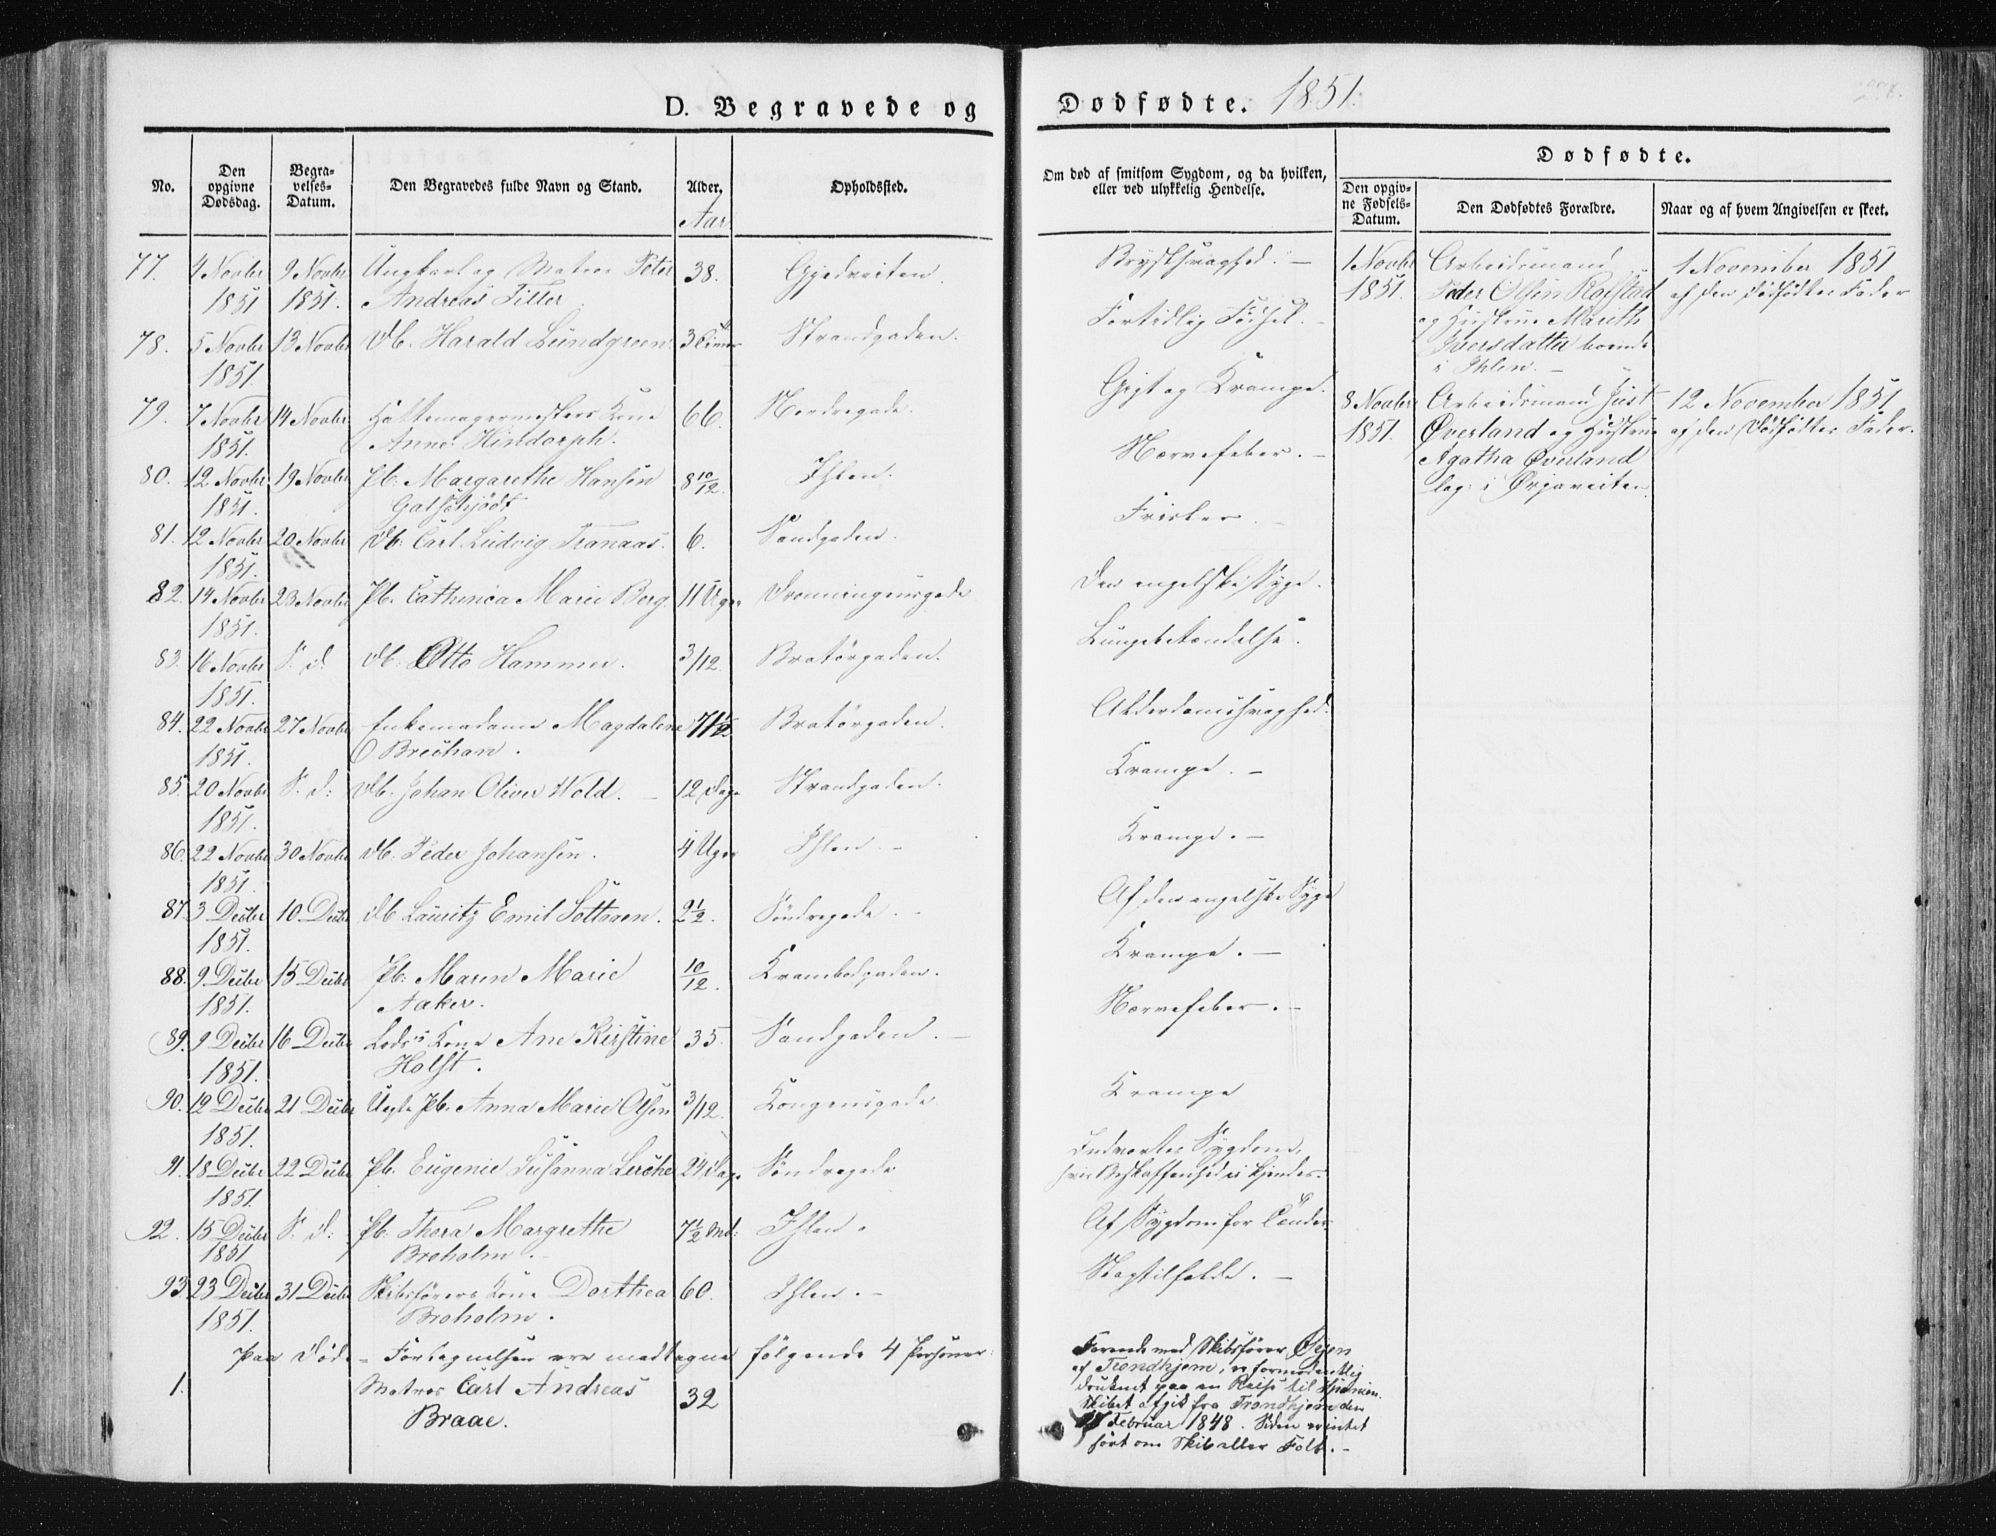 D. Begravede og Dødfødte. 1851.
No.
Den opgivne Dødsdag.
Begravelses-Datum.
Den Begravedes fulde Navn og Stand.
Alder.
Aar
Opholdssted.
Om død af smitsom Sygdom, og da hvilken, eller ved ulykkelig Hendelse.
Dødfødte.
Den opgivne Fødsels-Datum.
Den Dødfødtes Forældre.
Naar og af hvem Angivelsen er skeet.
77. 4 Novbr 9 Novbr Ungkarl og Matros Peter 38. Gjedveiten. Brystsvaghed. –
1851 1851. Andreas Tiller.
78. 5 Novbr 13 Novbr Db. Harald Lundgreen. 3 Timer Strandgaden. Fortidlig Fødsel. –
1851.
79. 7 Novbr 14 Novbr Hattemagermesters Kone 66. Nordregade. Gigt og Krampe.
1851. Anne Hindorph.
80. 12 Novbr 19 Novbr Pb. Margarethe Hansen 8 10/12. Ihlen. Nervefeber. –
1851. Galschjødt
81. 12 Novbr 20 Novbr Db. Carl Ludvig Tranaas. 6. Sandgaden. Frisler. –
1851.
82. 14 Novbr 23 Novbr Pb. Cathinca Marie Berg. 11 Uger Dronningensgade Den engelske Syge.
1851.
83. 16 Novbr S. d. Db. Otto Hammer. 3/12. Bratørgaden. Lungebetændelse.
1851.
84. 22 Novbr 27 Novbr Enkemadame Magdalene 71 1/2 Bratørgaden. Alderdomssvaghed.
1851. Brechan.
85. 20 Novbr S. d: Db. Johan Oliver Wold. – 12 Dage Strandgaden. Krampe. –
1851.
86. 22 Novbr 30 Novbr Db. Peder Johansen. 4 Uger Ihlen. – Krampe. –
1851.
87. 3 Decbr 10 Decbr Db Lauritz Emil Sottaren. 2 1/2. Søndregade. – Af den engelske Syge
1851.
88. 9 Decbr 15 Decbr Pb. Maren Marie 10/12. Krambodgaden. Krampe. –
1851. Aaker.
89. 9 Decbr 16 Decbr Lods's Kone Ane Kirstine 35. Sandgaden. – Nervefeber. –
1851. Holst.
90. 12 Decbr 21 Decbr Uægte Pb. Anna Marie Olsen 3/12. Kongensgade. Krampe
1851.
91. 18 Decbr 22 Decbr Pb. Eugenie Susanna Lerche 24 Dage Søndregade Indvortes Sygdom,
1851. hvis Beskaffenhed ei kjendes.
92. 15 Decbr S. d: Pb. Thora Margrethe 7 1/2 Md: Ihlen. Af Sygdom for Tænder
1851 Broholm.
93. 23 Decbr 31 Decbr Skibsførers Kone Dorthea 60. Ihlen. – Slagtilfælde. –
1851. Broholm.
Paa Døde-Fortegnelsen ere modtagne følgende 4 Personer:
1. Matros Carl Andreas 32
Braae.
Farende med Skibsfører
af Trondhjem, er formodentlig
druknet paa en Reise til Spanien.
Skibet afgik fra Trondhjem den
Februar 1848. Siden er intet
hørt om Skib eller Folk. –
1 Novbr Arbeidsmand 1 November 1851
1851. Peder Olsen Rolstad af den Dødfødtes Fader
og Hustrue Mareth
Iversdatter boende
i Ihlen. –
8 Novbr Arbeidsmand Just 12 November 1851
1851. Øverland og Hustrue af den Dødfødtes Fader.
Agatha Øverland
log: i Ørjaveiten.